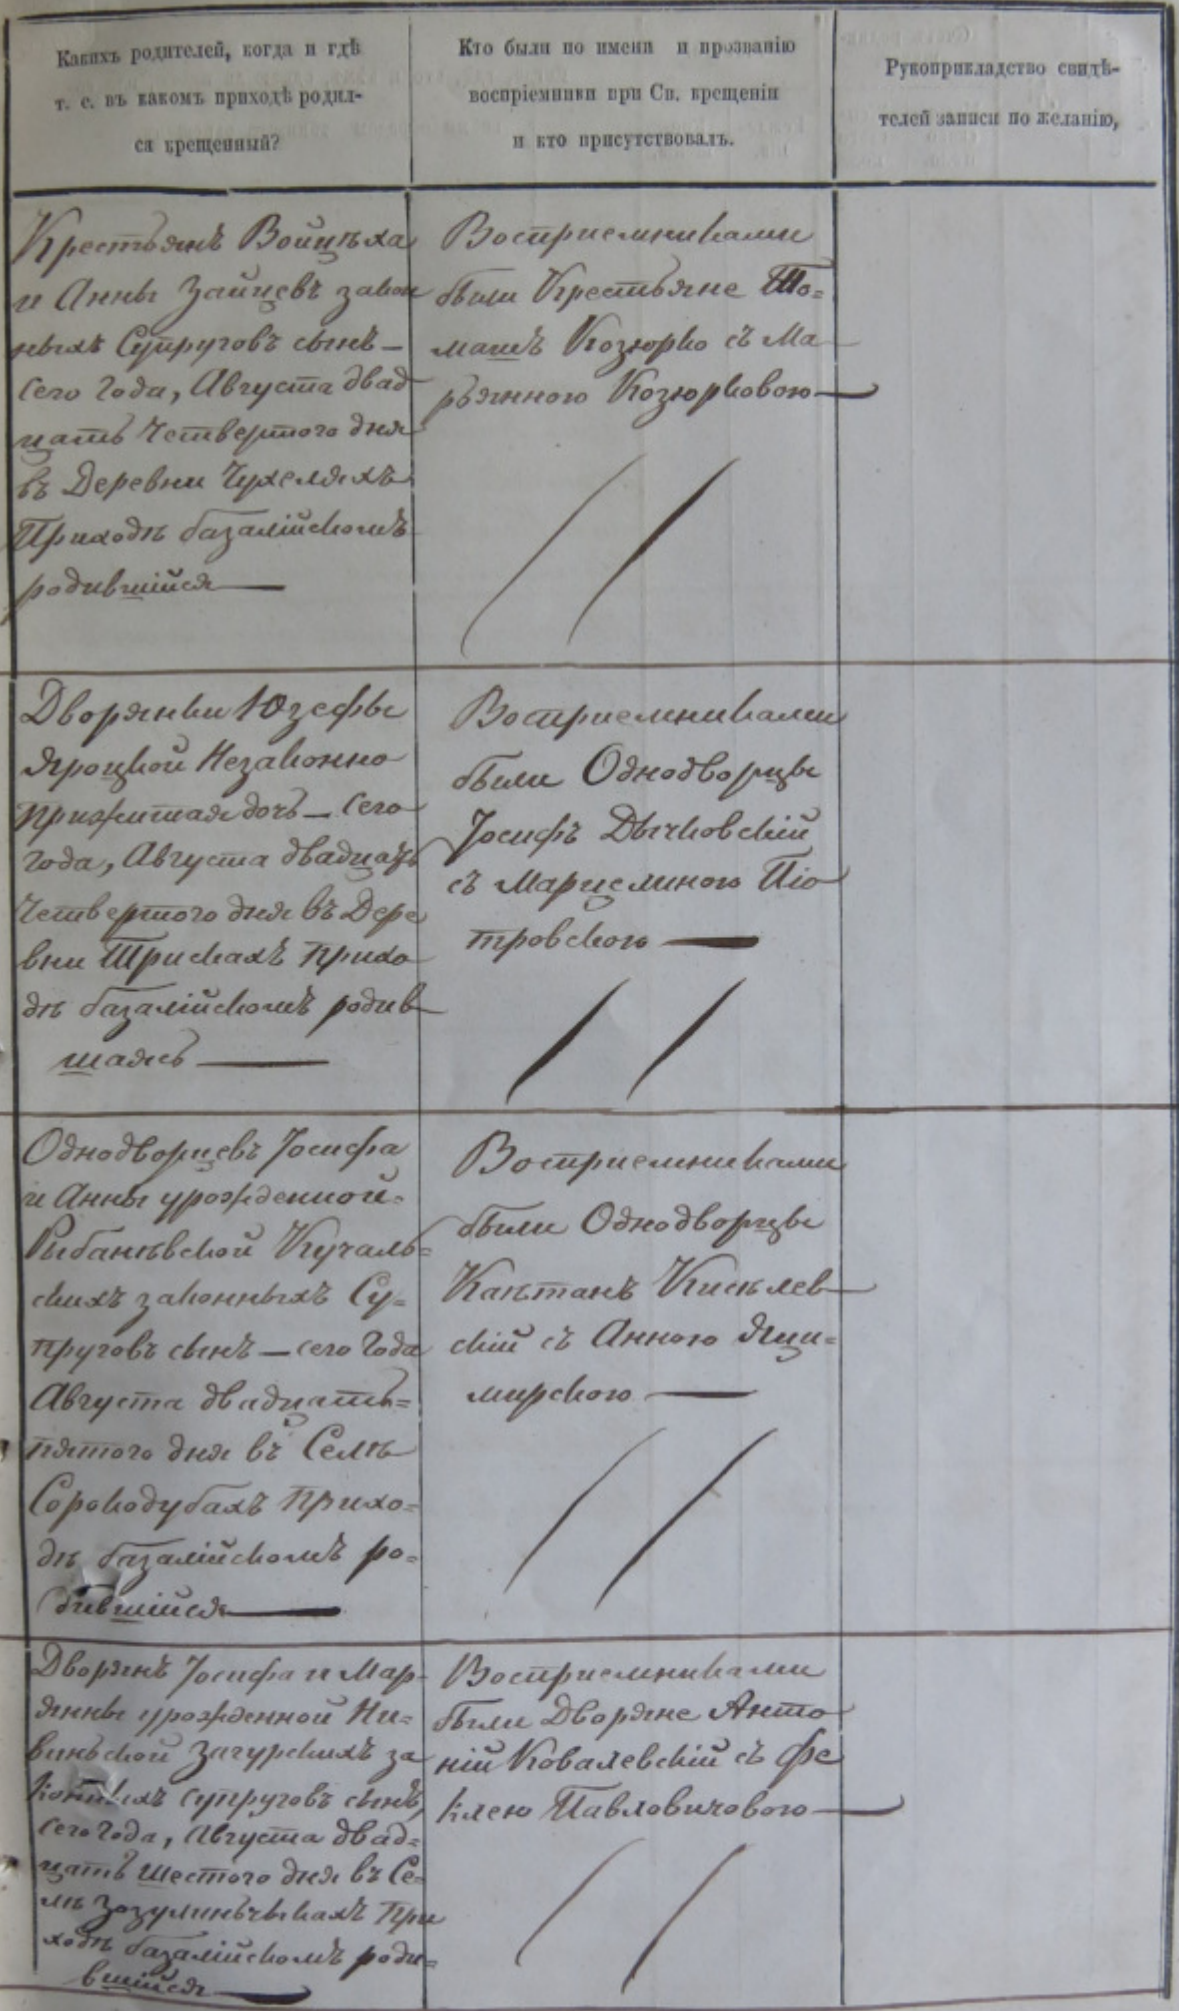 Какихъ родителей, когда и гдѣ
т. е. въ какомъ приходѣ родил-
ся крещенный?
Кто были по имени и прозванію
воспріемники при Св. крещеніи
и кто присутствовалъ.
Рукоприкладство свидѣ-
телей записи по желанію,
Крестьянъ Войцѣха
и Анны Зайцевъ закон
ныхъ Супруговъ сынъ —
сего года, Августа двад
цать Четвертого дня
въ Деревни Чухеляхъ
Приходѣ базалійскомъ
родившійся —
Восприемниками
были Крестьяне То=
машъ Козюрко съ Ма
рьянною Козюрковою —
Дворянки Юзефы
Яроцкой Незаконно
прижитая дочь — сего
года, Августа двадцать
Четвертого дня въ Дере
вни Трискахъ прихо
дѣ базалійскомъ родив
шаясь —
Восприемниками
были Однодворцы
Іосифъ Дычковскій
съ Марцелиною Піо
тровскою —
Однодворцевъ Іосифа
и Анны урожденной=
Рыбаневской Кучаль=
скихъ законныхъ Су=
пруговъ сынъ — сего Года
Августа двадцать=
пятого дня въ Селѣ
Сорокодубахъ прихо=
дѣ базалійскомъ ро=
дившійся —
Восприемниками
были Однодворцы
Каетанъ Киселев
скій съ Анною Яци=
мирскою —
Дворянъ Іосифа и Мар
янны урожденной Ни=
виньской Загурскихъ за
конныхъ супруговъ сынъ,
сего года, Августа двад=
цать шестого дня въ Се=
лѣ Зозулиньчыкахъ При
ходѣ базалійскомъ роди=
вшійся —
Восприемниками
были Дворяне Анто
ній Ковалевскій съ Фе
клею Павловичовою —